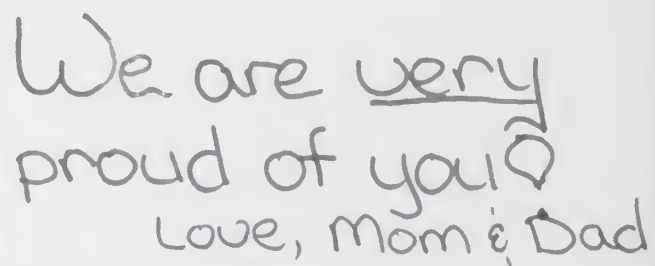 We are very
proud of you!
Love, Mom & Dad